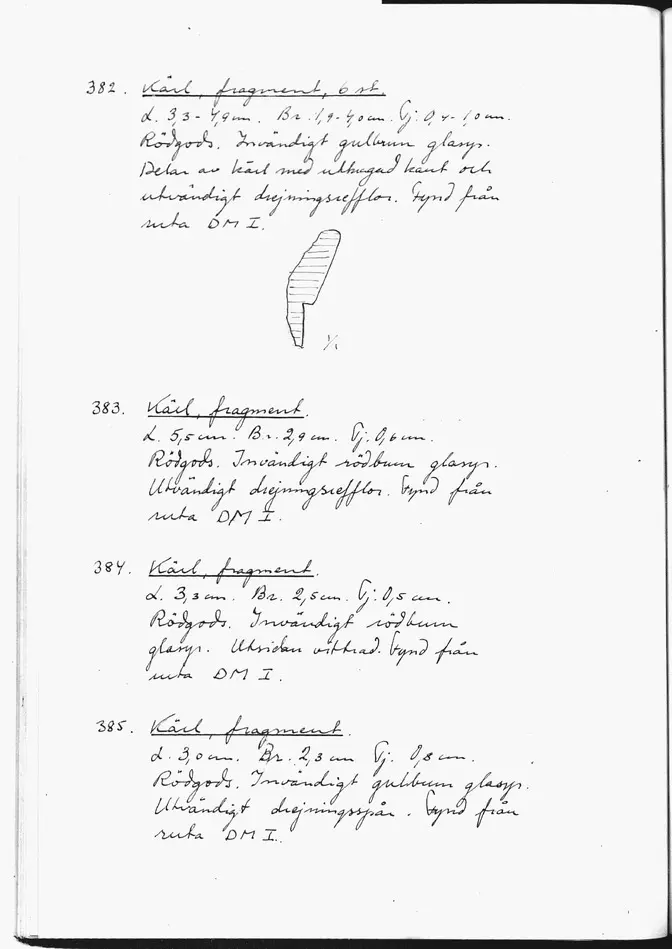 382. Kärl, fragment, 6 st.
L. 3,3-4,9 cm. Br. 1,9-4,0 cm. Tj: 0,4-1,0 cm.
Rödgods. Invändigt gulbrun glasyr.
Delar av kärl med utbugad kant och
utvändigt drejningsrefflor. Fynd från
ruta DM I.
1/1
383. Kärl, fragment.
L. 5,5 cm. Br. 2,9 cm. Tj. 0,6 cm.
Rödgods. Invändigt rödbrun glasyr.
Utvändigt drejningsrefflor. Fynd från
ruta DM I.
384. Kärl, fragment.
L. 3,3 cm. Br. 2,5 cm. Tj: 0,5 cm.
Rödgods. Invändigt rödbrun
glasyr. Utsidan vittrad. Fynd från
ruta DM I.
385. Kärl, fragment.
L. 3,0 cm. Br. 2,3 cm Tj. 0,8 cm.
Rödgods. Invändigt gulbrun glasyr.
Utvändigt drejningsspår. Fynd från
ruta DM I.